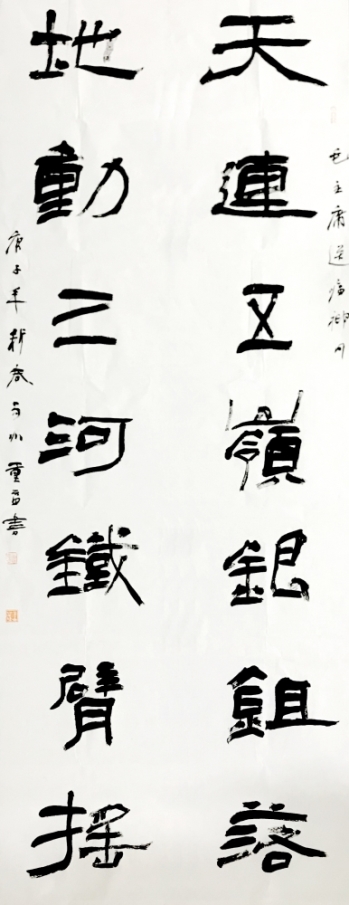 毛主席送瘟神句
天連五嶺銀鉏落
地動三河鐵臂搖
庚子年新春書